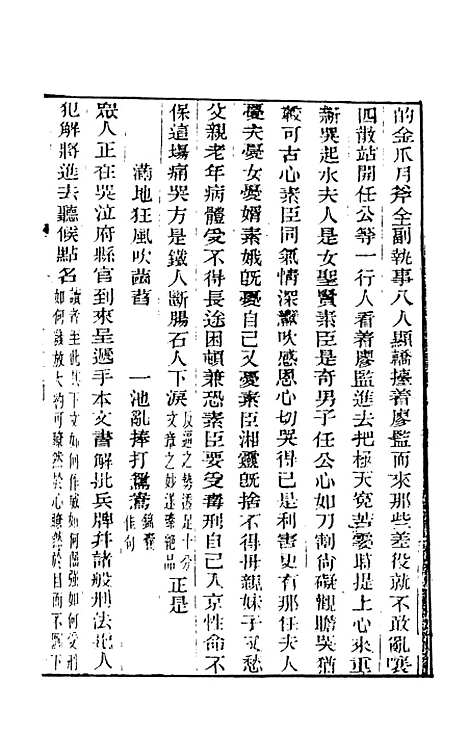 的金爪月斧全副執事八人顯轎擡著廖監而來那些差役就不敢亂嚷
四散站開任公等一行人看著廖監進去把極天寃苦霎時提上心來重
新哭起水夫人是女聖賢素臣是奇男子任公心如刀割尙礙觀瞻哭猶
較可古心素臣同氣情深讖吹感恩心切哭得已是利害更有那任夫人
憂夫憂女憂婿素娥旣憂自己又憂素臣湘靈旣捨不得母親妹子又愁
父親老年病體受不得長途困頓兼恐素臣要受毒刑自己入京性命不
保這塲痛哭方是鐵人斷腸石人下淚反逼足十分文章之妙遂臻絕品正是
滿地狂風吹菡萏　一池亂捧打鴛鴦錦囊佳句
眾人正在哭泣府縣官到來呈遞手本文書解批兵牌幷諸般刑法犯人
犯解將進去聽候點名讀者至此其下文如何作威如何倔强如何受刑如何讖放大約可瞭然於心瞭然於目而不虞下